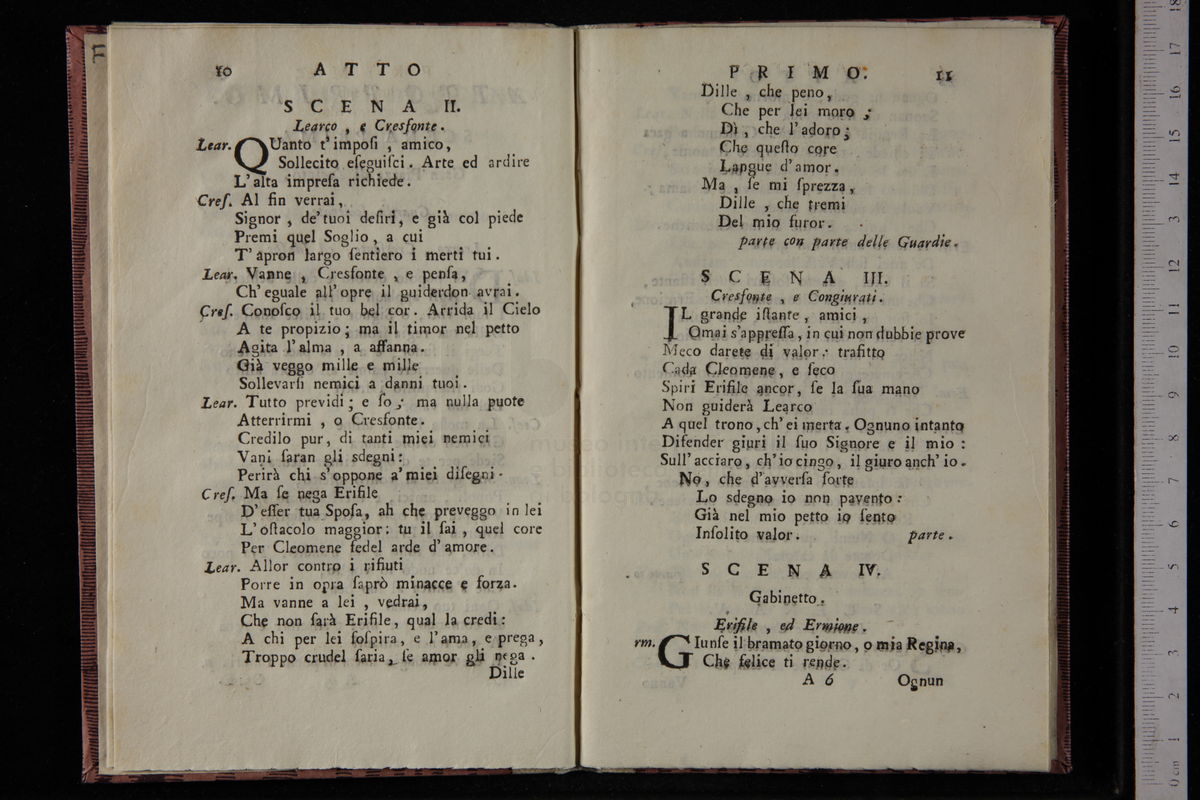 10 ATTO
SCENA II.
Learco , e Cresfonte .
Lear. QUanto t'imposi , amico,
Sollecito eseguisci . Arte ed ardire
L'alta impresa richiede .
Cres. Al fin verrai ,
Signor , de' tuoi desiri , e già col piede
Premi quel Soglio , a cui
T' apron largo sentiero i merti tui .
Lear. Vanne , Cresfonte , e pensa ,
Ch' eguale all' opre il guiderdon avrai .
Cres. Conosco il tuo bel cor . Arrida il Cielo
A te propizio ; ma il timor nel petto
Agita l' alma , a affanna .
Già veggo mille e mille
Sollevarsi nemici a danni tuoi .
Lear. Tutto previdi ; e so ; ma nulla puote
Atterrirmi , o Cresfonte .
Credilo pur , di tanti miei nemici
Vani saran gli sdegni :
Perirà chi s'oppone a' miei disegni .
Cres. Ma se nega Erifile
D' esser tua Sposa , ah che preveggo in lei
L' ostacolo maggior : tu il sai , quel core
Per Cleomene fedel arde d'amore .
Lear. Allor contro i rifiuti
Porre in opra saprò minacce e forza .
Ma vanne a lei , vedrai ,
Che non sarà Erifile , qual la credi :
A chi per lei sospira , e l'ama , e prega ,
Troppo crudel saria , se amor gli nega .
Dille
PRIMO. 11
Dille , che peno ,
Che per lei moro ;
Dì , che l' adoro ;
Che questo core
Langue d'amor .
Ma , se mi sprezza ,
Dille , che tremi
Del mio furor .
parte con parte delle Guardie .
SCENA III.
Cresfonte , e Congiurati .
IL grande istante , amici ,
Omai s'appressa , in cui non dubbie prove
Meco darete di valor : trafitto
Cada Cleomene , e seco
Spiri Erifile ancor , se la sua mano
Non guiderà Learco
A quel trono , ch' ei merta . Ognuno intanto
Difender giuri il suo Signore e il mio :
Sull' acciaro , ch' io cingo , il giuro anch' io .
No , che d'avversa sorte
Lo sdegno io non pavento :
Già nel mio petto io sento
Insolito valor . parte .
SCENA IV.
Gabinetto .
Erifile , ed Ermione .
rm. GIunse il bramato giorno , o mia Regina ,
Che felice ti rende .
A 6 Ognun